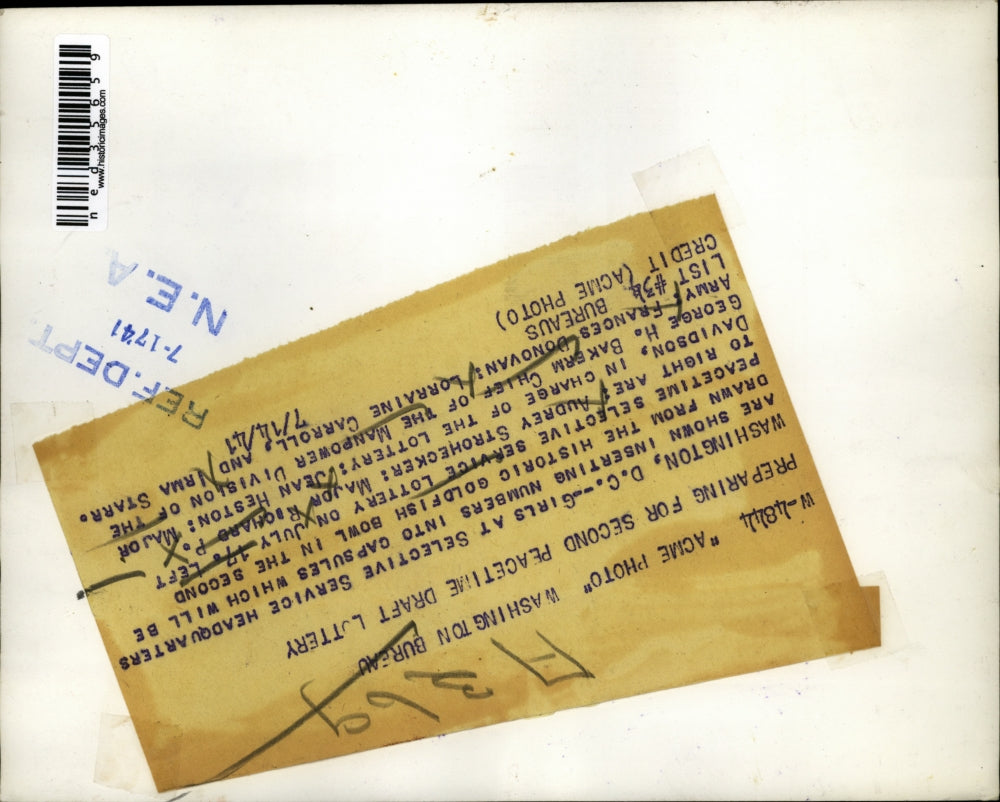 ned35659
www.historicimages.com
N.E.A
7-1741
REF. DEPT.
"ACME PHOTO" WASHINGTON BUREAU
W-4844
PREPARING FOR SECOND PEACETIME DRAFT LOTTERY
WASHINGTON, D.C.--GIRLS AT SELECTIVE SERVICE HEADQUARTERS
ARE SHOWN INSERTING NUMBERS INTO CAPSULES WHICH WILL BE
DRAWN FROM THE HISTORIC GOLDFISH BOWL IN THE SECOND
PEACETIME SELECTIVE SERVICE LOTTERY ON JULY 17. LEFT
TO RIGHT ARE: AUDREY STROHECKER: MAJOR RICHARD P.
DAVIDSON, IN CHARGE OF THE LOTTERY: JEAN HESTON: MAJOR
GEORGE H. BAKERM CHIEF OF THE MANPOWER DIVISION OF THE
ARMY FRANCES DONOVAN: LORRAINE CARROLL, AND NIRMA STARR.
LIST #3A BUREAUS 7/14/41
CREDIT (ACME PHOTO)